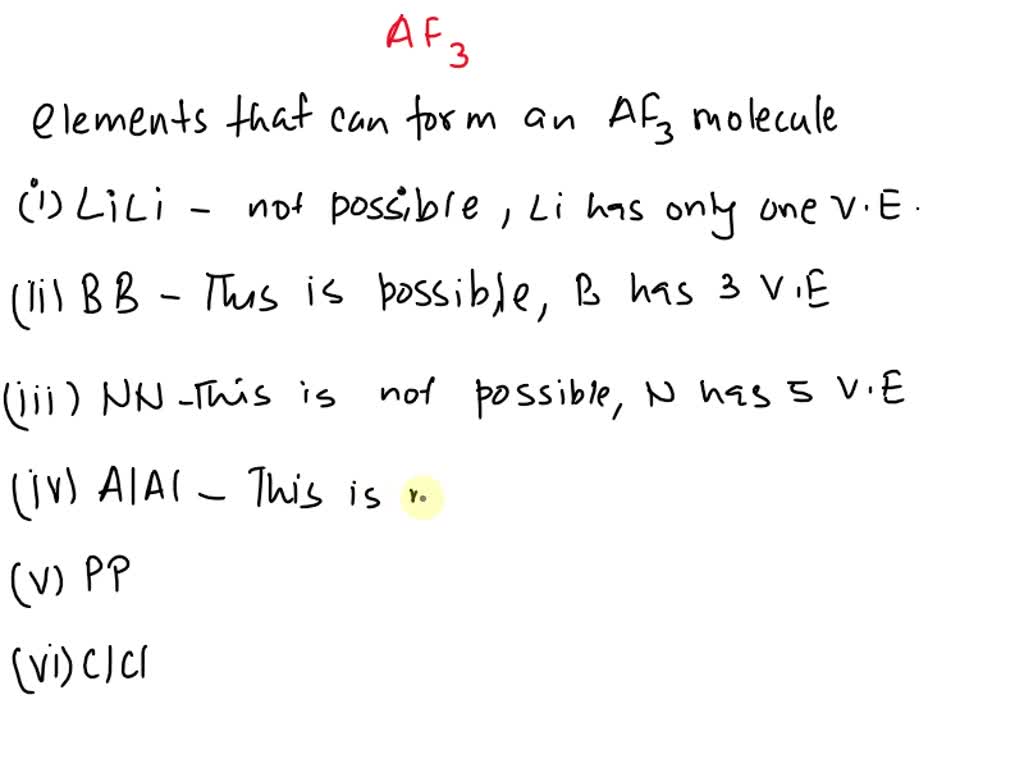 AF₃
elements that can form an AF₃ molecule
(i) LiLi - not possible, Li has only one V.E.
(ii) BB - This is possible, B has 3 V.E
(iii) NN - This is not possible, N has 5 V.E
(iv) AlAl - This is
(v) PP
(vi) ClCl